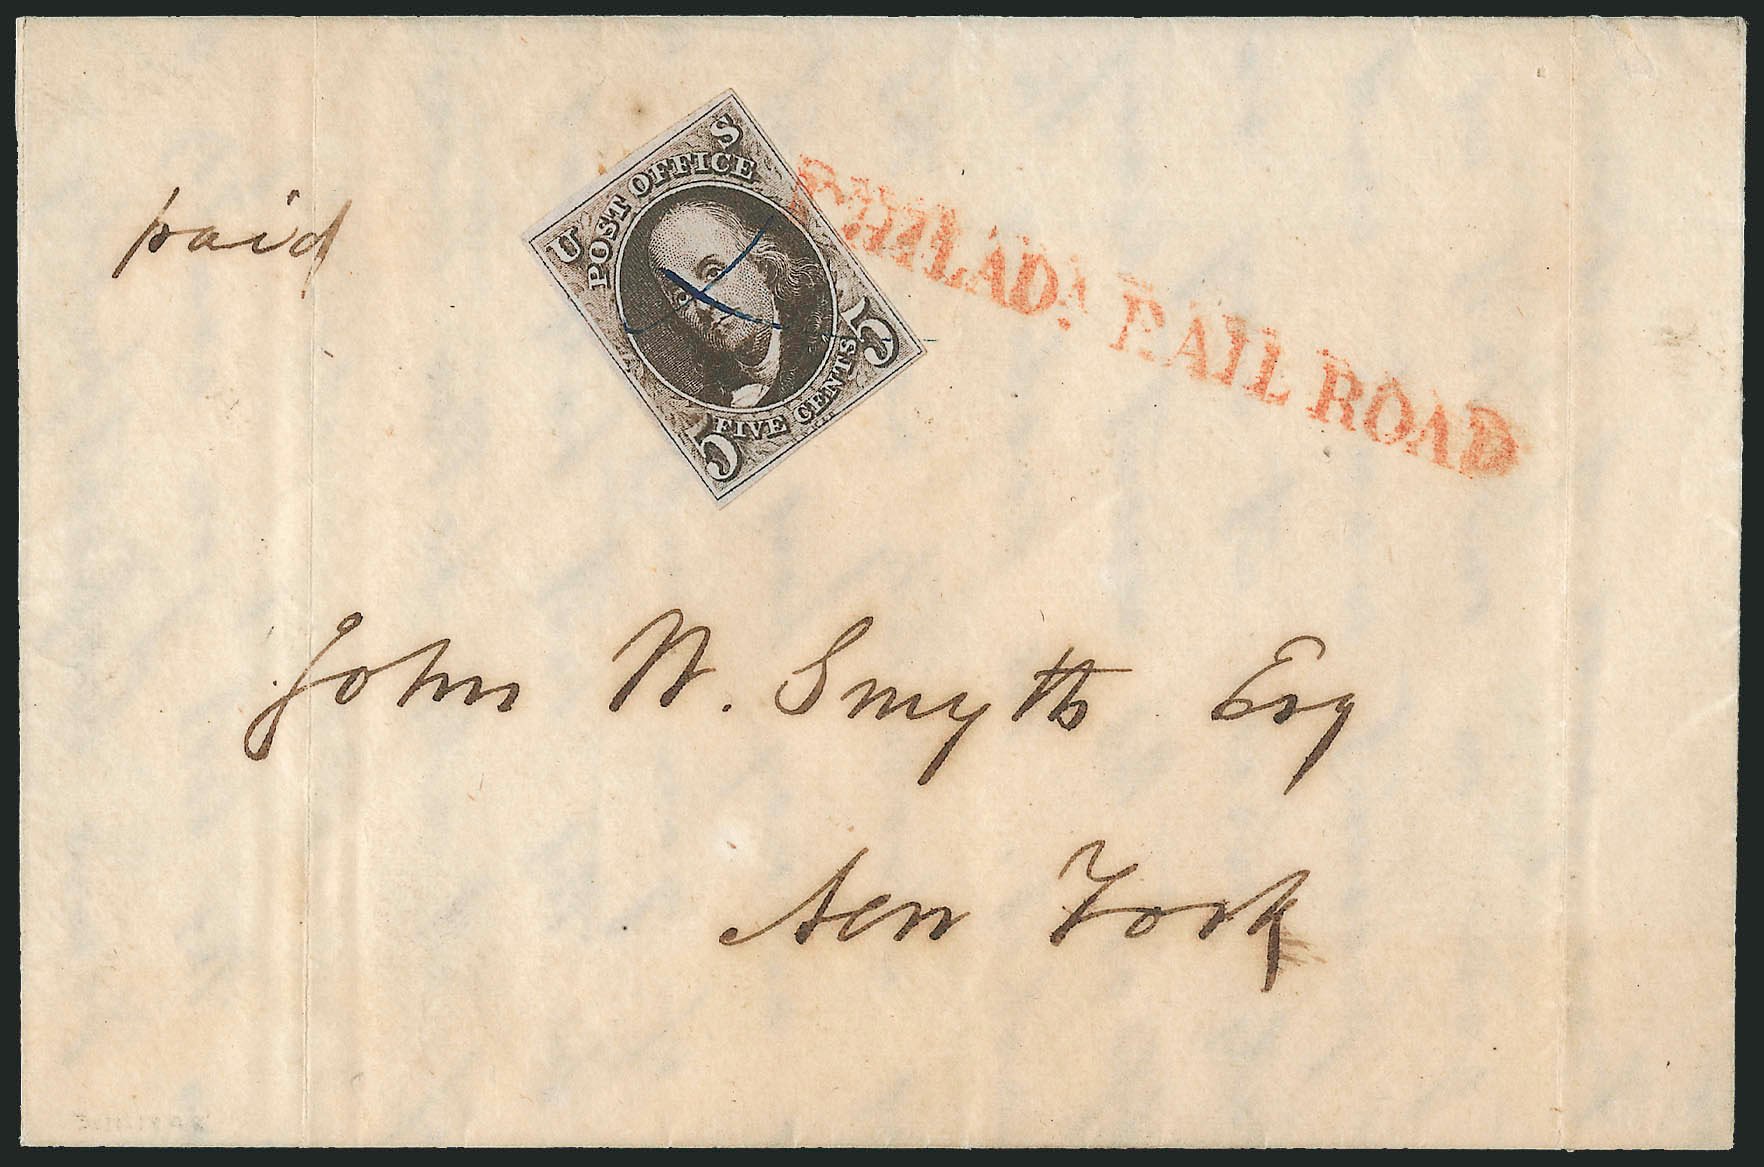 paid
U S
POST OFFICE
5 FIVE CENTS 5
PHILAD: RAIL ROAD
John W. Smyth Esq
New York